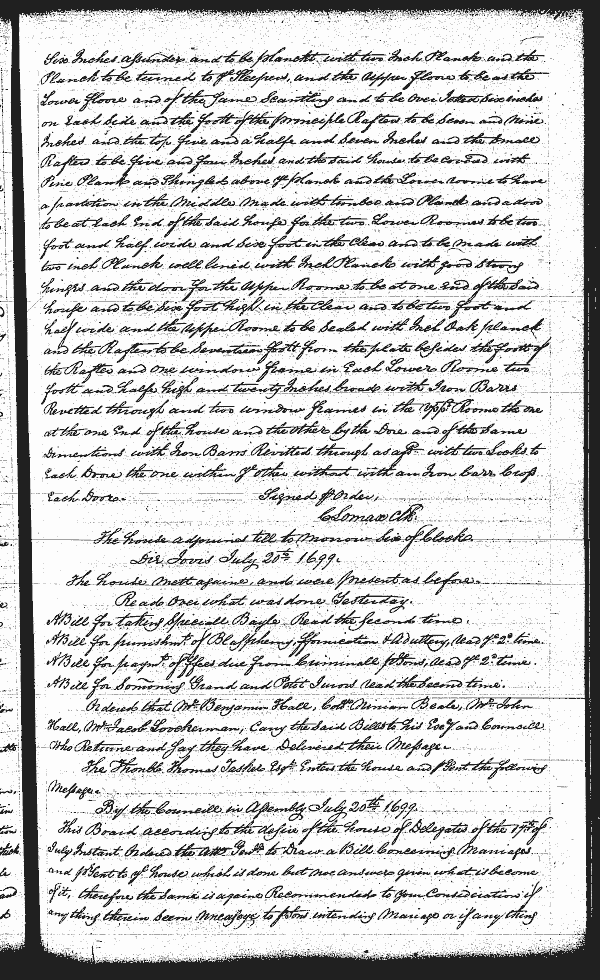 Six Inches assunder and to be planckt with two Inch Planck and the
Planck to be turned to ye Sleepers, and the upper floore to be as the
Lower floore and of the Same Scantling and to be over Jetted Six inches
on Each Side and the foott of the principle Rafters to be Seven and Nine
Inches and the top five and a halfe and Seven Inches and the Small
Rafters to be five and four Inches and the said house to be covered with
Pine Plank and Shingled above ye planck and the Lower roome to have
a partition in the Middle made with timber and Planck and a door
to be att Each End of the said house for the two Lower Roomes to be two
foot and half wide and Six foot in the Clear and to be made with
two inch Planck well lined with Inch Planck with good Strong
hinges and the door for the upper Roome to be at one end of the Said
house and to be Six foot high in the Clear and to be two foot and
half wide and the upper Roome to be Sealed with Inch Oak planck
and the Rafters to be Seventeen foott from the plate besides the foott of
the Rafter and one window frame in Each Lower Roome two
foott and halfe high and twenty Inches broad with Iron Barrs
Revetted through and two window frames in the upp Roome the one
at the one End of the house and the other by the Dore and of the Same
Dimentions with Iron Barrs Rivitted through as afd with two Locks to
Each Doore the one within ye other without with an Iron barr Cross
Each Doore. Signed p Order,
CLomax Clk.
The house adjourns till to Morrow Six of Clock
Die Jovis July 20th 1699.
The house mett againe and were present as before.
Read Over what was done Yesterday.
A Bill for taking Speciall Bayle Read the Second time.
A Bill for punishmt of Blasphemy, fornication & Adultery, read ye 2d time.
A Bill for paymt of ffees due from Criminall psons, read ye 2d time.
A Bill for Somoning Grand and Petit Jurors read the Second time.
Ordered that Mr Benjamin Hall, Coll Ninian Beale, Mr John
Hall, Mr Jacob Lookerman, Carry the Said Bills to his Exy and Councill
Who Returne and Say they have Delivered their Message.
The Honble Thomas Tasker Esqr Enters the house and psent the following
Message.
By the Councill in Assembly July 20th 1699.
This Board according to the desire of the house of Delegates of the 17th of
July Instant Ordered the Atty Genll to Draw a Bill Concerning Mariages
and psent to ye house which is done but noe answere given what is become
of it, therefore the Same is againe Recommended to your Consideration if
any thing therein Seem uneasye to psons intending Mariage or if any thing